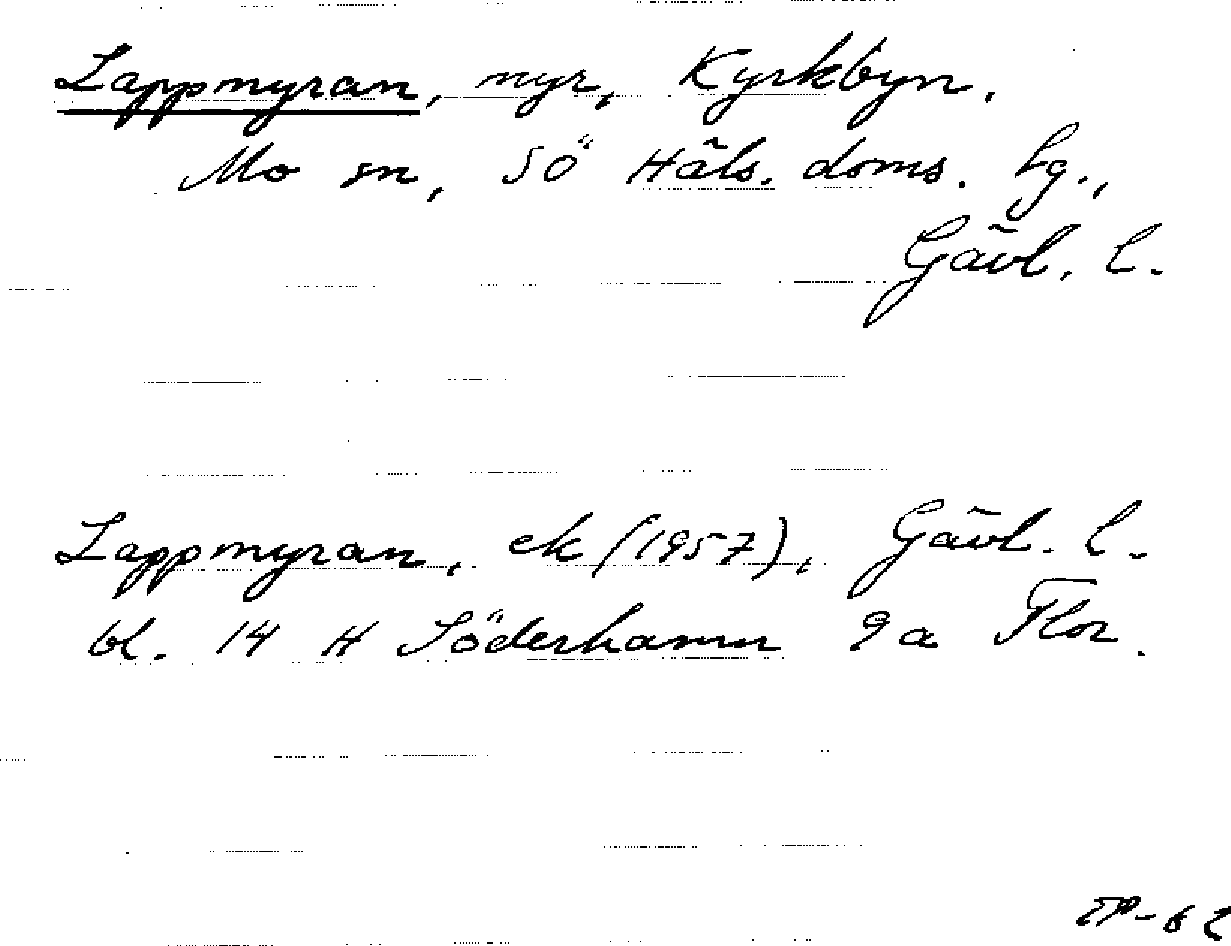 Lappmyran, myr, Kyrkbyn.
Mo sn, SÖ Häls. doms. hg.,
Gävl. l.
Lappmyran, ek (1957), Gävl. l.
bl. 14 H Söderhamn 9a Flor.